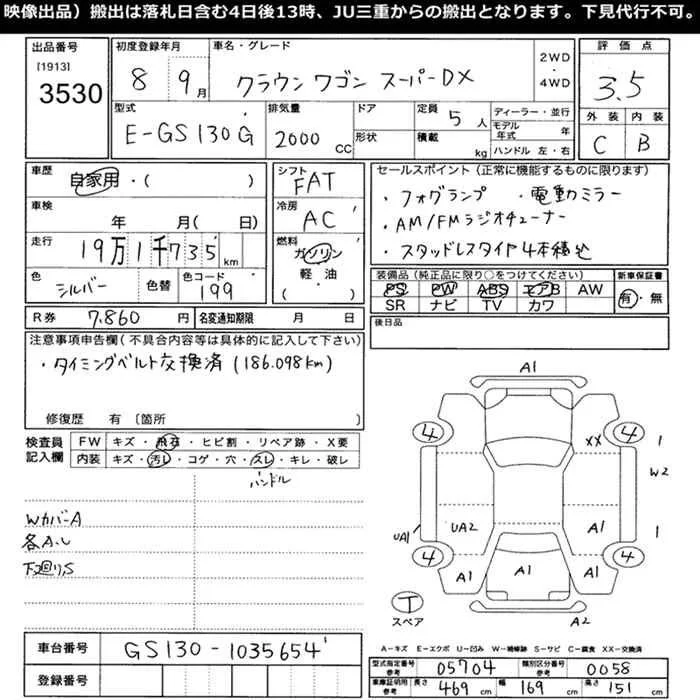 映像出品）搬出は落札日含む4日後13時、JU三重からの搬出となります。下見代行不可。
出品番号
[1913]
3530
初度登録年月
8 9月
車名・グレード
クラウン ワゴン スーパーDX
2WD
・
4WD
評価点
3.5
外装 内装
C B
型式
E-GS130G
排気量
2000 CC
ドア
形状
定員 5 人
積載 kg
ディーラー・並行
モデル年式 年
ハンドル 左・右
車歴
自家用・( )
車検
年 月( 日)
走行
19万1千735 km
色
シルバー
色替
色コード
199
シフト
FAT
冷房
AC
燃料
ガソリン
軽・油
( )
セールスポイント（正常に機能するものに限ります）
・フォグランプ ・電動ミラー
・AM/FMラジオチューナー
・スタッドレスタイヤ4本積込
装備品（純正品に限り○をつけてください）
PS PW ABS エアB AW
SR ナビ TV カワ
新車保証書
有・無
R券 7,860 円
名変通知期限 月 日
後日品
注意事項申告欄（不具合内容等は具体的に記入して下さい）
・タイミングベルト交換済 (186.098km)
修復歴 有〔箇所 〕
検査員記入欄
FW キズ・飛石・ヒビ割・リペア跡・X要
内装 キズ・汚レ・コゲ・穴・スレ・キレ・破レ
ハンドル
Wカバー A
各A.U
下廻り,S
A1
4 4
XX 1
W2
UA1 UA2 A1 1
4 4
A1 A1 A1
T
スペア
A2
A－キズ E－エクボ U－凹み W－補修跡 S－サビ C－腐食 XX－交換済
車台番号 GS130-1035654
登録番号
型式指定番号 参考 05704
類別区分番号 参考 0058
車庫証明用 参考 長さ 469 cm 幅 169 cm 高さ 151 cm